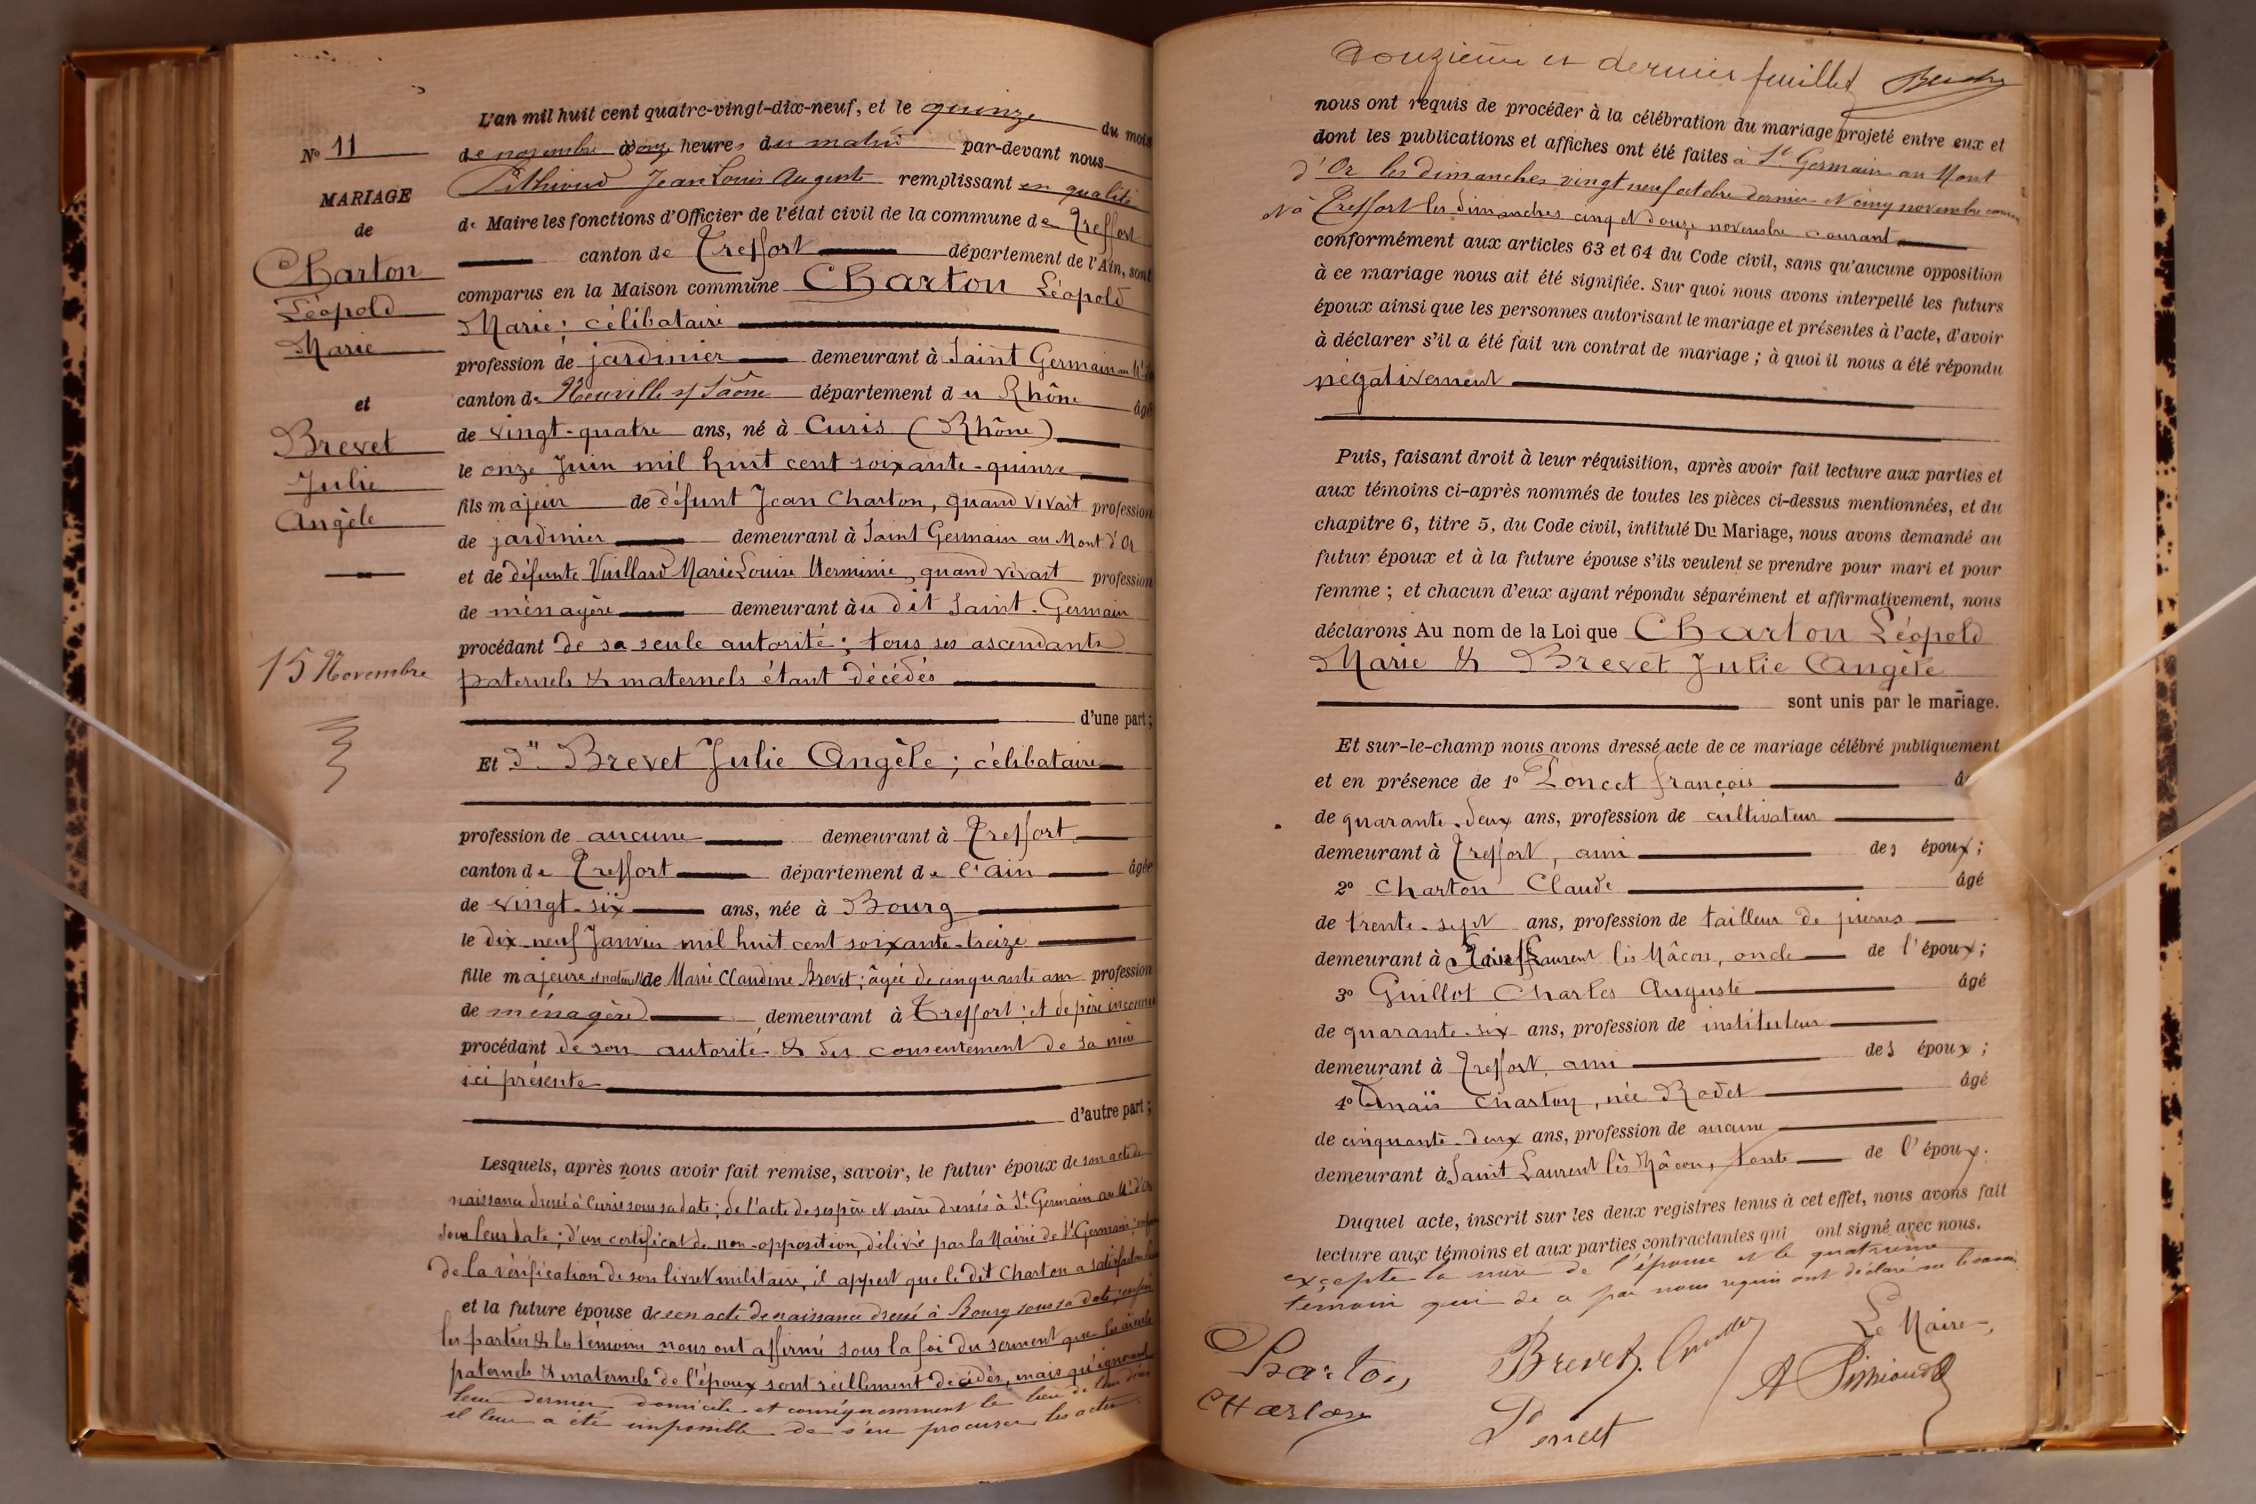 L'an mil huit cent quatre-vingt-dix-neuf, et le quinze du mois
No 11
de novembre à onze heures du matin par-devant nous
Pithioud Jean Louis Auguste remplissant en qualité
MARIAGE
de Maire les fonctions d'Officier de l'état civil de la commune de Treffort
de
canton de Treffort département de l'Ain, sont
Charton
comparus en la Maison commune Charton Léopold
Léopold
Marie ; célibataire
Marie
profession de jardinier demeurant à Saint Germain au Mt d'Or
canton de Neuville s/ Saône département du Rhône âgé
et
de vingt-quatre ans, né à Curis (Rhône)
Brevet
le onze Juin mil huit cent soixante-quinze
Julie
fils majeur de défunt Jean Charton, quand vivait profession
Angèle
de jardinier demeurant à Saint Germain au Mont d'Or
et de défunte Vuillard Marie Louise Herminie, quand vivait profession
de ménagère demeurant au dit Saint-Germain
procédant de sa seule autorité ; tous ses ascendants
15 Novembre
paternels & maternels étant décédés
d'une part ;
Et Dlle Brevet Julie Angèle ; célibataire
profession de aucune demeurant à Treffort
canton de Treffort département de l'Ain âgée
de vingt-six ans, née à Bourg
le dix-neuf Janvier mil huit cent soixante-treize
fille majeure et naturelle de Marie Claudine Brevet ; âgée de cinquante ans profession
de ménagère demeurant à Treffort ; et de père inconnu
procédant de son autorité & du consentement de sa mère
ici présente
d'autre part ;
Lesquels, après nous avoir fait remise, savoir, le futur époux de son acte de
naissance dressé à Curis sous sa date ; de l'acte de ses père et mère dressés à St Germain au Mt d'Or
sous leur date ; d'un certificat de non-opposition, délivré par la Mairie de St Germain ; enfin
de la vérification de son livret militaire, il appert que le dit Charton a satisfait
et la future épouse de son acte de naissance dressé à Bourg sous sa date ; enfin
les parties & les témoins nous ont affirmé sous la foi du serment que les aïeuls
paternels & maternels de l'époux sont réellement décédés, mais qu'ignorant
leur dernier domicile et conséquemment le lieu de leur décès
il leur a été impossible de s'en procurer les actes
Douzième et dernier feuillet
nous ont requis de procéder à la célébration du mariage projeté entre eux et
dont les publications et affiches ont été faites à St Germain au Mont
d'Or les dimanches vingt neuf octobre dernier et cinq novembre courant
et à Treffort les dimanches cinq et douze novembre courant
conformément aux articles 63 et 64 du Code civil, sans qu'aucune opposition
à ce mariage nous ait été signifiée. Sur quoi nous avons interpellé les futurs
époux ainsi que les personnes autorisant le mariage et présentes à l'acte, d'avoir
à déclarer s'il a été fait un contrat de mariage ; à quoi il nous a été répondu
négativement
Puis, faisant droit à leur réquisition, après avoir fait lecture aux parties et
aux témoins ci-après nommés de toutes les pièces ci-dessus mentionnées, et du
chapitre 6, titre 5, du Code civil, intitulé Du Mariage, nous avons demandé au
futur époux et à la future épouse s'ils veulent se prendre pour mari et pour
femme ; et chacun d'eux ayant répondu séparément et affirmativement, nous
déclarons Au nom de la Loi que Charton Léopold
Marie & Brevet Julie Angèle
sont unis par le mariage.
Et sur-le-champ nous avons dressé acte de ce mariage célébré publiquement
et en présence de 1o Poncet François
de quarante-deux ans, profession de cultivateur
demeurant à Treffort, ami des époux ;
2o Charton Claude âgé
de trente-sept ans, profession de tailleur de pierres
demeurant à Saint Laurent lès Mâcon, oncle de l'époux ;
3o Guillot Charles Auguste âgé
de quarante-six ans, profession de instituteur
demeurant à Treffort, ami des époux ;
4o Anaïs Charton, née Rodet âgé
de cinquante-deux ans, profession de aucune
demeurant à Saint Laurent lès Mâcon, tante de l'époux.
Duquel acte, inscrit sur les deux registres tenus à cet effet, nous avons fait
lecture aux témoins et aux parties contractantes qui ont signé avec nous.
excepté la mère de l'épouse et le quatrième
témoin qui de ce par nous requis ont déclaré ne le savoir
Le Maire,
Charton Brevet Guillot A Pithioud
Charton Poncet